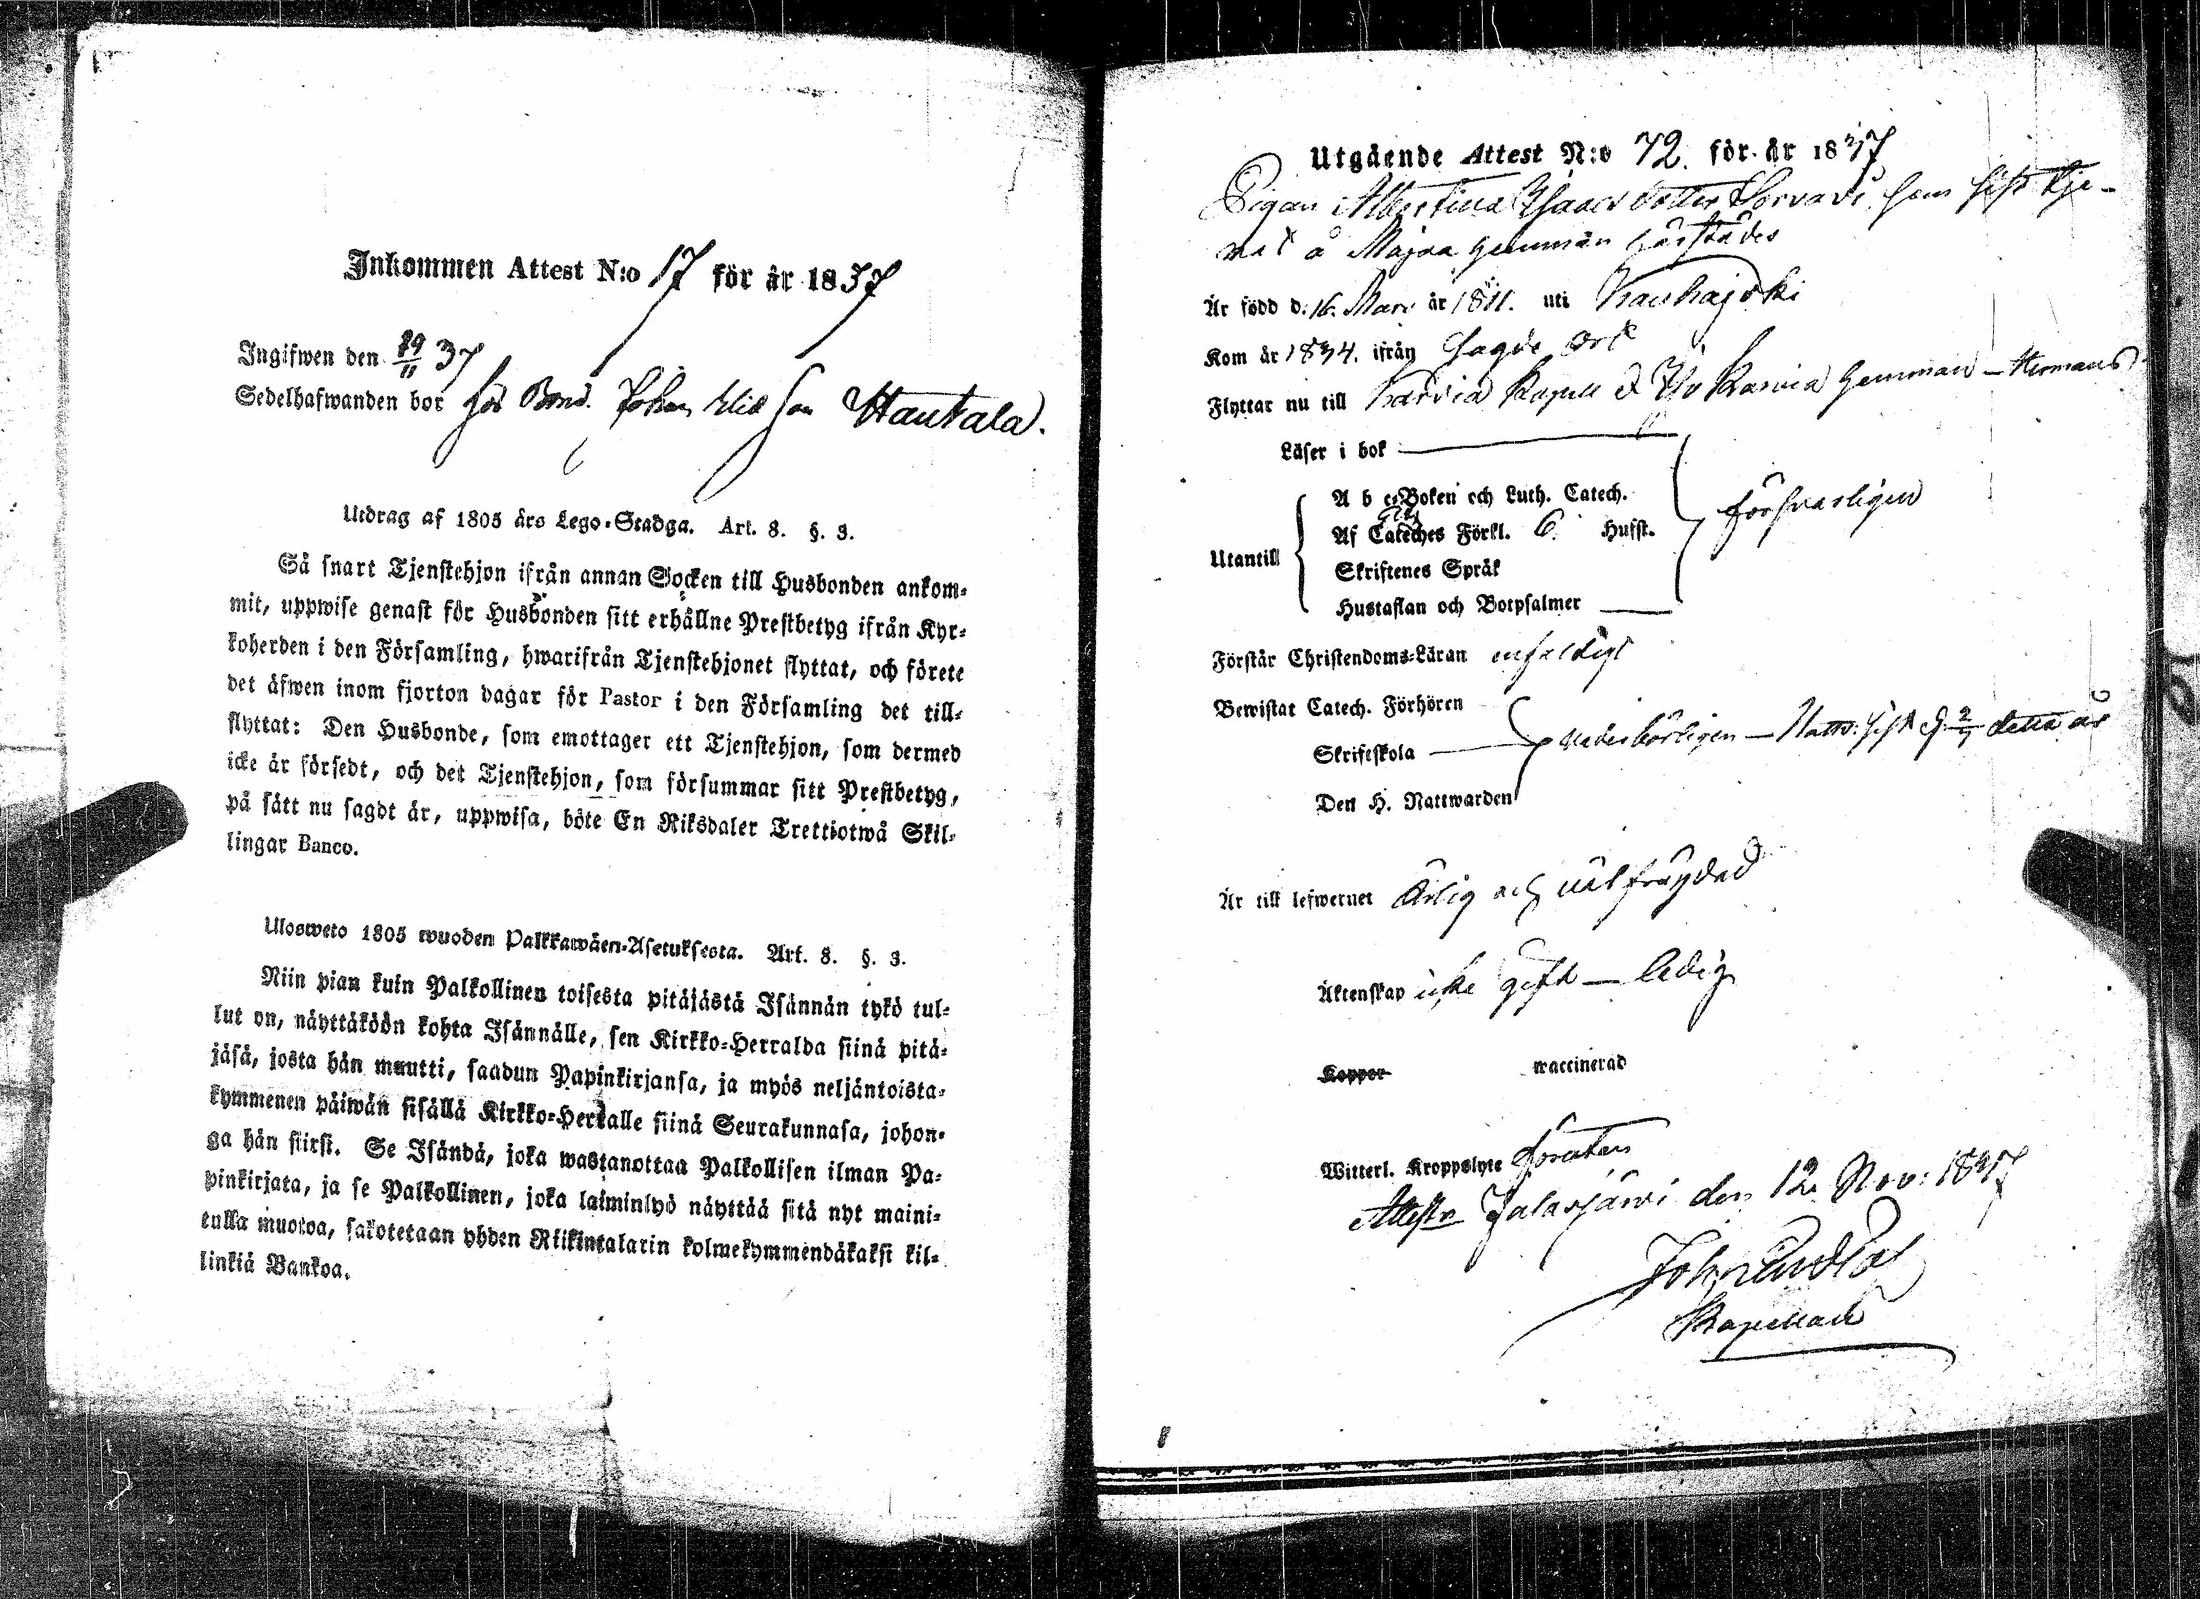 Inkommen Attest N:o 17 för år 1837
Ingifwen den 29/11 37
Sedelhafwanden bor hos Bond. Johan Elias son Hautala.
Utdrag af 1805 års Lego-Stadga. Art. 8. §. 3.
Så snart Tjenstehjon ifrån annan Socken till Husbonden ankom-
mit, uppwise genast för Husbonden sitt erhållne Prestbetyg ifrån Kyr-
koherden i den Församling, hwarifrån Tjenstehjonet flyttat, och förete
det äfwen inom fjorton dagar för Pastor i den Församling det till-
flyttat: Den Husbonde, som emottager ett Tjenstehjon, som dermed
icke är försedt, och det Tjenstehjon, som försummar sitt Prestbetyg,
på sätt nu sagdt är, uppwisa, böte En Riksdaler Trettiotwå Skil-
lingar Banco.
Ulosweto 1805 wuoden Palkkawäen-Asetuksesta. Art. 8. §. 3.
Niin pian kuin Palkollinen toisesta pitäjästä Isännän tykö tul-
lut on, näyttäköön kohta Isännälle, sen Kirkko-Herralda siinä pitä-
jäsä, josta hän muutti, saadun Papinkirjansa, ja myös neljäntoista-
kymmenen päiwän sisällä Kirkko-Herralle siinä Seurakunnasa, johon-
ga hän siirsi. Se Isändä, joka wastanottaa Palkollisen ilman Pa-
pinkirjata, ja se Palkollinen, joka laiminlyö näyttää sitä nyt maini-
tulla muotoa, sakotetaan yhden Riikintalarin kolmekymmendäkaksi kil-
linkiä Bankoa.
Utgående Attest N:o 72. för år 1837
Pigan Albertina Isaacs dotter Sorvari som sist tje-
nat å Majaa hemman härstädes
Är född d. 16. Mars år 1811. uti Kauhajoki
Kom år 1834. ifrån sagde ort
Flyttar nu till Karvia Kapell Karvia hemman – Hermans
Läser i bok
Utantill
A b c-Boken och Luth. Catech.
Af Cateches Förkl. 6. Hufst.
Skriftenes Språk
Hustaflan och Botpsalmer
försvarligen
Förstår Christendoms-Läran enfaldigt
Bewistat Catech. Förhören
Skriftskola
vederbörligen – Nattv: sist d. detta år
Den H. Nattwarden
Är till lefwernet ärlig och välfrägdad
Äktenskap icke gift – ledig
Koppor waccinerad
Witterl. Kroppslyte förutan
Attest. Jalasjärvi den 12 Nov: 1837
Joh.
Kapellan